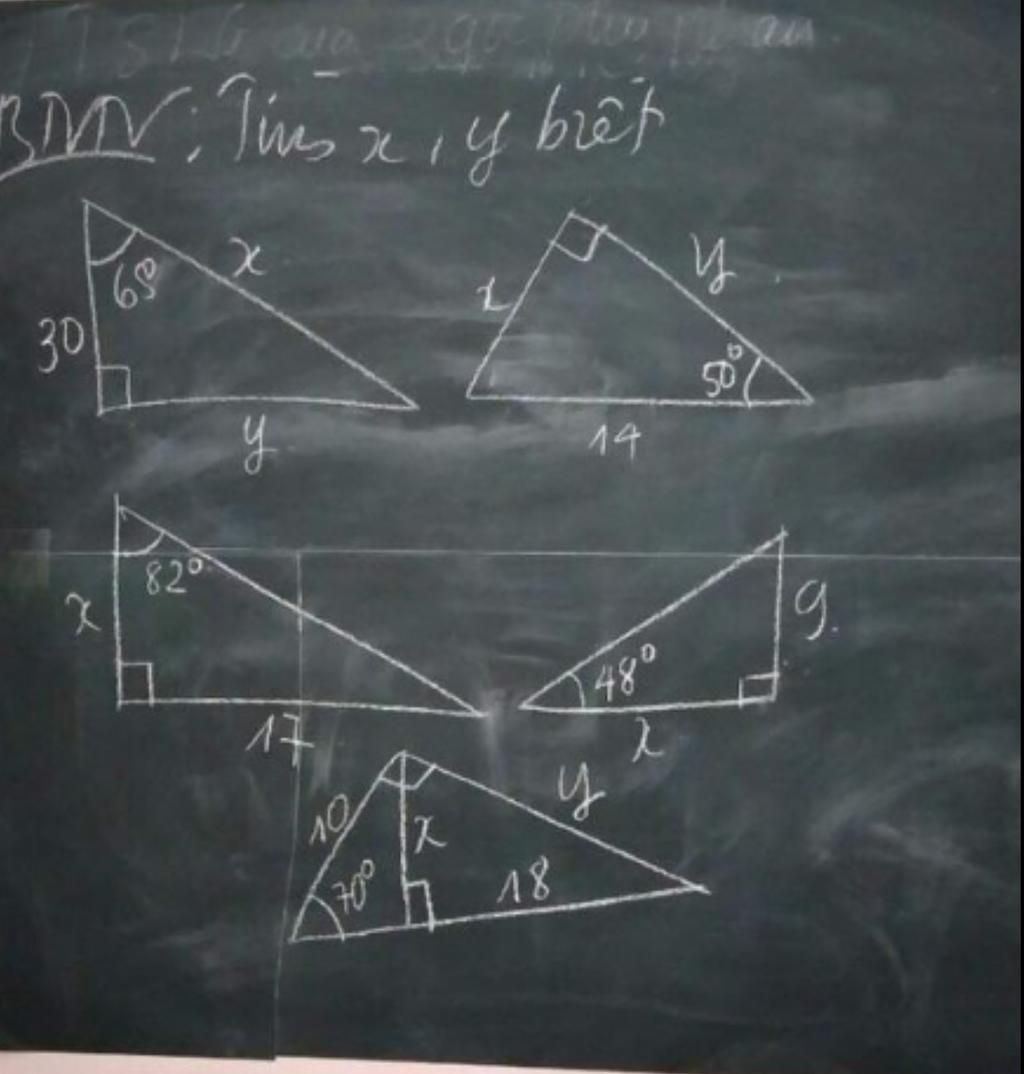 BTVN: Tìm x, y biết
68 x
30
y
x y
50°
14
82°
x
17
48° 9
x
10 x y
70° 18